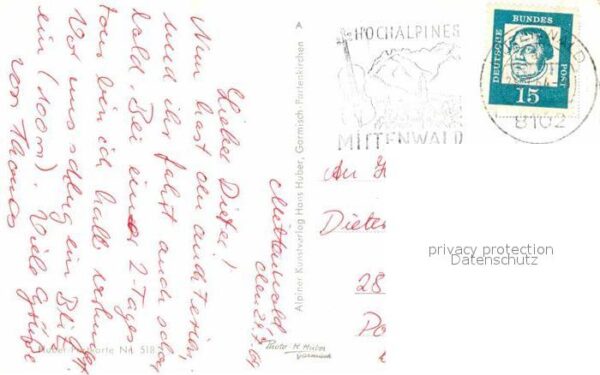 Mittenwald
den 24.7.64
Lieber Dieter!
Nun hast du auch Ferien
und ihr fahrt auch schon
bald. Bei einer 2-Tages
tour bin ich halb
Vor uns schlug ein Blitz
ein (100m). Viele Grüße
von Thomas
A
Alpiner Kunstverlag Hans Huber, Garmisch-Partenkirchen
Huber-Karte Nr. 518
Photo H. Huber
Garmisch
HOCHALPINES
MITTENWALD
8102
DEUTSCHE
BUNDES
POST
15
An
Dieter
28
privacy protection
Datenschutz